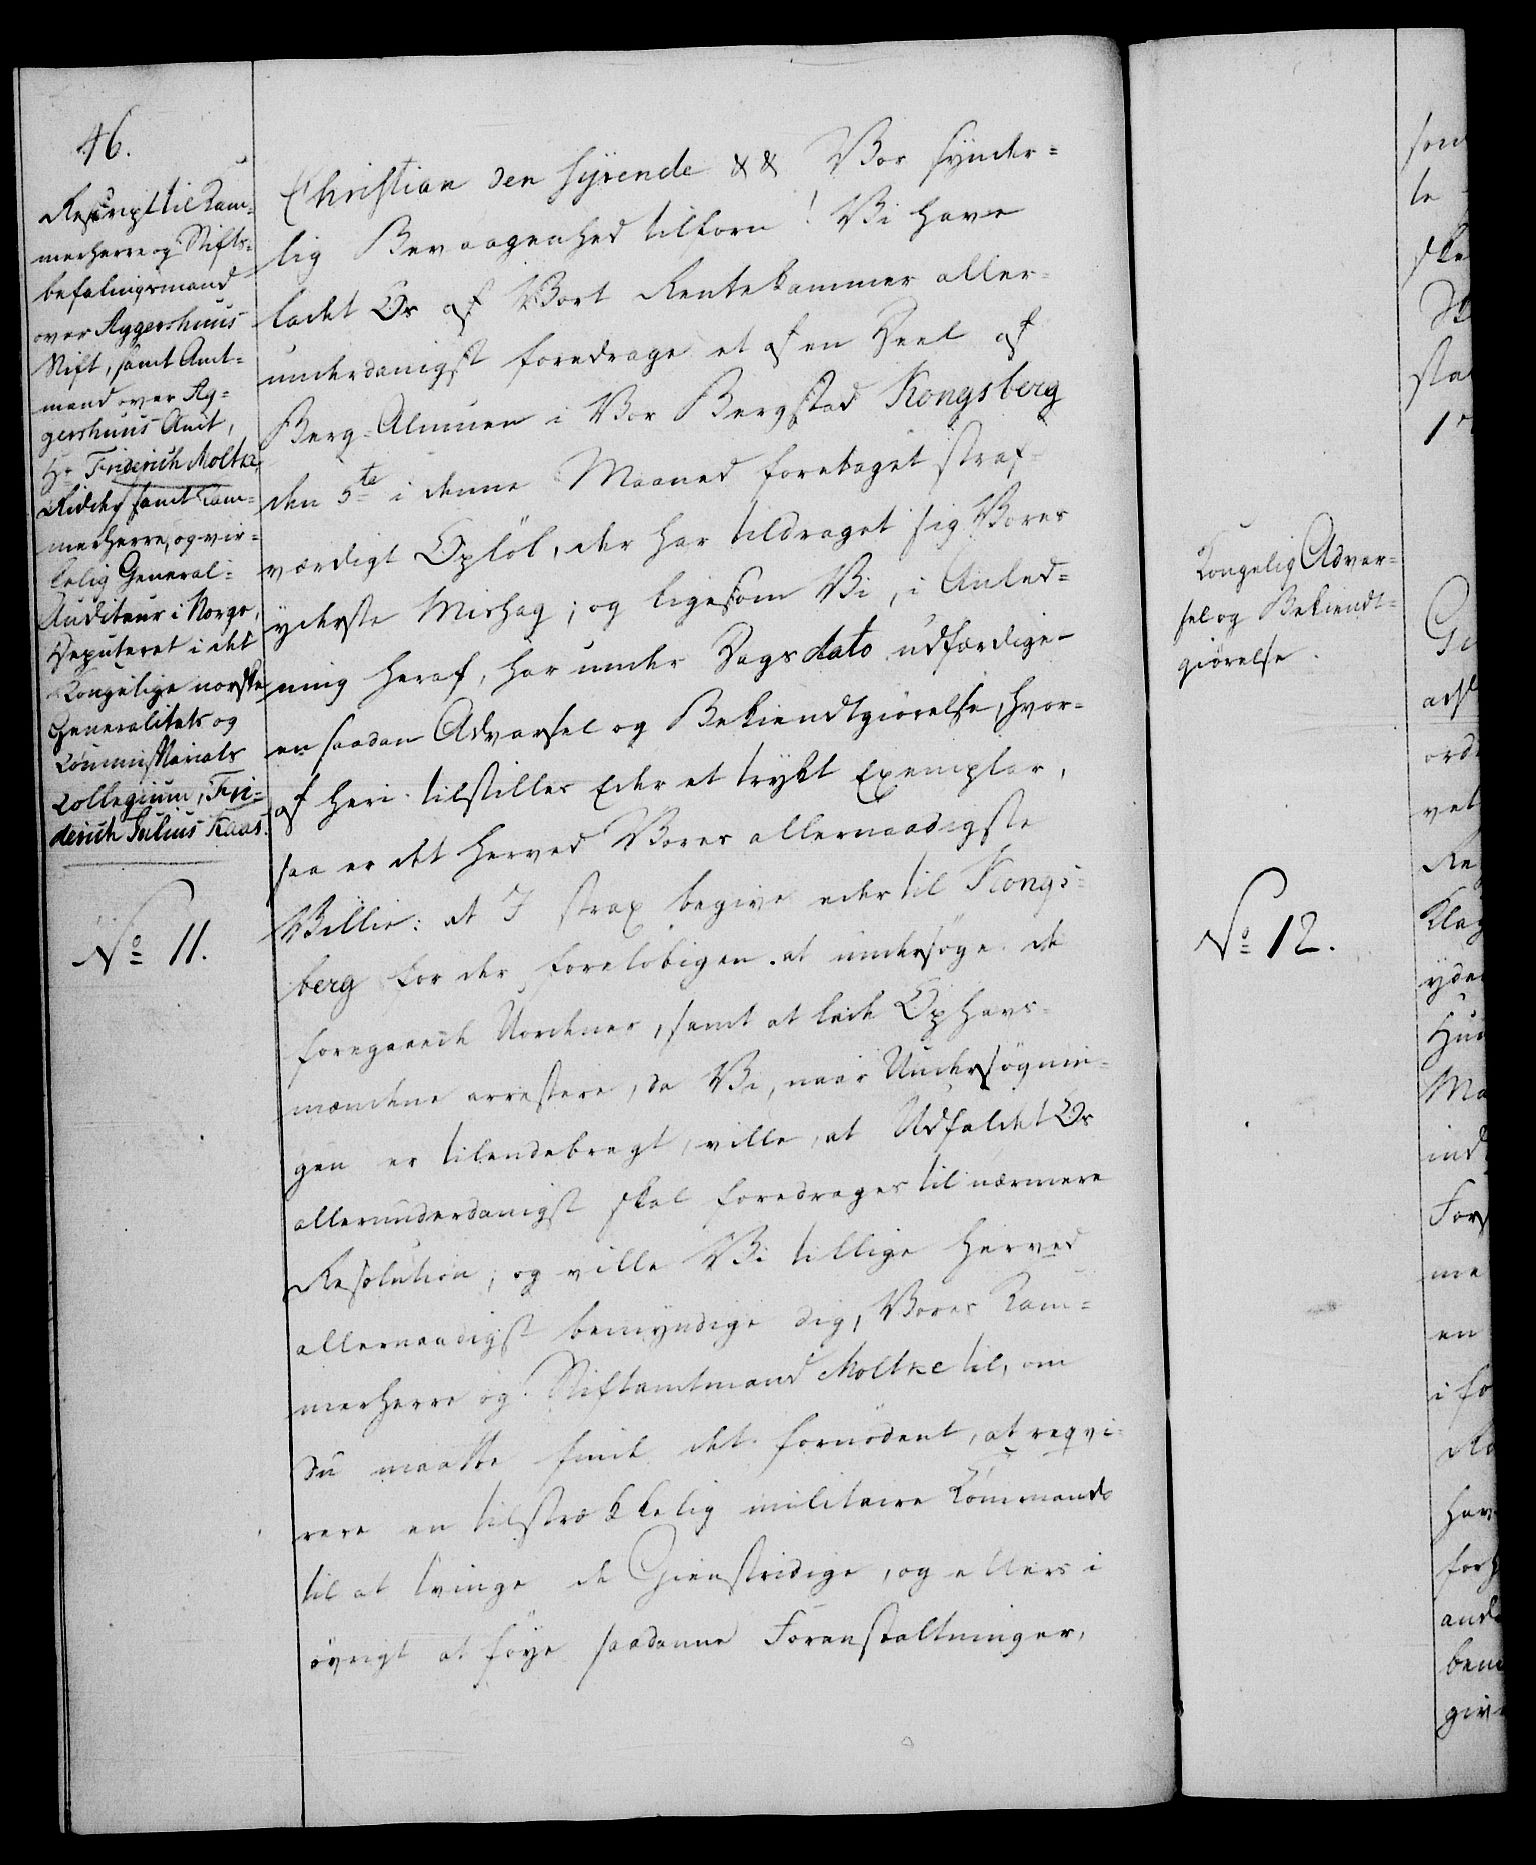 46.
Rescript til Kam-
merherre og Stifts-
befalingsmand
over Aggershuus
Stift, samt Amt-
mand over Ag-
gershuus Amt,
Hr Friderich Moltke,
Ridder, samt Kam-
merherre, og vir-
kelig General-
Auditeur i Norge,
Deputeret i det
Kongelige norske
Generalitets og
Commissariats
Collegium, Fri-
derich Julius Kaas.
No 11.
Christian den Syvende && Vor synder-
lig Bevaagenhed tilforn! Vi have
ladet Os af Vort Rentekammer aller-
underdanigst foredrage et af en Deel af
Berg-Almuen i Vor Bergstad Kongsberg
den 5te i denne Maaned foretaget straf-
værdigt Opløb, der har tildraget sig Vores
yderste Mishag; og ligesom Vi, i Anled-
ning heraf, har under Dags dato udfærdige
en saadan Advarsel og Bekiendtgiørelse, hvor-
af heri tilstilles Eder et trykt Exemplar,
saa er det herved Vores allernaadigste
Villie: at I strax begive eder til Kongs-
berg for der foreløbigen at undersøge de
foregaaede Uordener, samt at lade Ophavs-
mændene arrestere, da Vi, naar Undersøgnin-
gen er tilendebragt, ville, at Udfaldet Os
allerunderdanigst skal foredrages til nærmere
Resolution; og ville Vi tillige herved
allernaadigst bemyndige dig, Vores Kam-
merherre og Stiftamtmand Moltke til, om
du maatte finde det fornødent, at reqvi-
rere en tilstrækkelig militaire Kommando
til at tvinge de Gienstridige, og ellers i
øvrigt at føye saadanne Foranstaltninger,
Kongelig Advar-
sel og Bekiendt-
giørelse.
No 12.